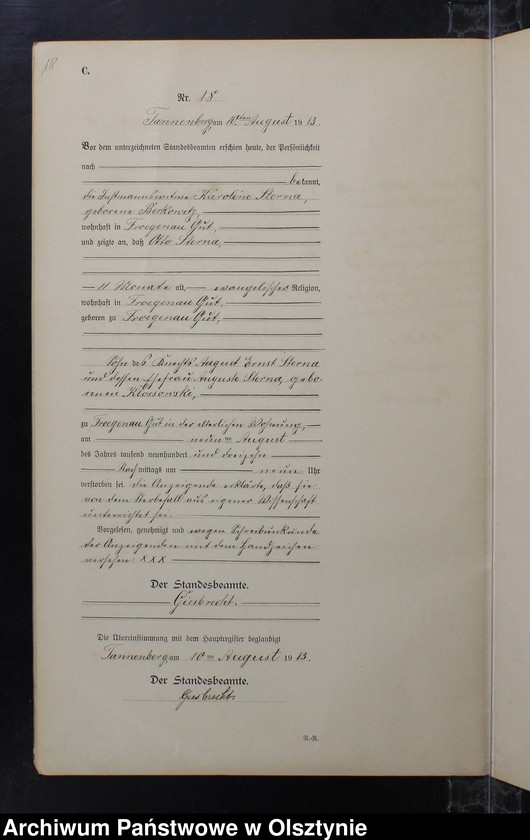 18
C.
Nr. 18
Tannenberg am 10ten August 1913.
Vor dem unterzeichneten Standesbeamten erschien heute, der Persönlichkeit
nach
bekannt,
die Instmannswitwe Karoline Sterna,
geborene Berkowitz,
wohnhaft in Froegenau Gut,
und zeigte an, daß Otto Sterna,
11 Monate alt, evangelischer Religion,
wohnhaft in Froegenau Gut,
geboren zu Froegenau Gut,
Sohn des Knechts August Ernst Sterna
und dessen Ehefrau Auguste Sterna, gebo-
renen
zu Froegenau Gut in der elterlichen Wohnung,
am neunten August
des Jahres tausend neunhundert und dreizehn
Nachmittags um neun Uhr
verstorben sei. Die Anzeigende erklärte, daß sie
von dem Sterbefall aus eigener Wissenschaft
unterrichtet sei.
Vorgelesen, genehmigt und wegen Schreibunkunde
der Anzeigenden mit dem Handzeichen
versehen: x x x
Der Standesbeamte.
Giesbrecht.
Die Übereinstimmung mit dem Hauptregister beglaubigt
Tannenberg am 10ten August 1913.
Der Standesbeamte.
Giesbrecht
R.-R.
Archiwum Państwowe w Olsztynie